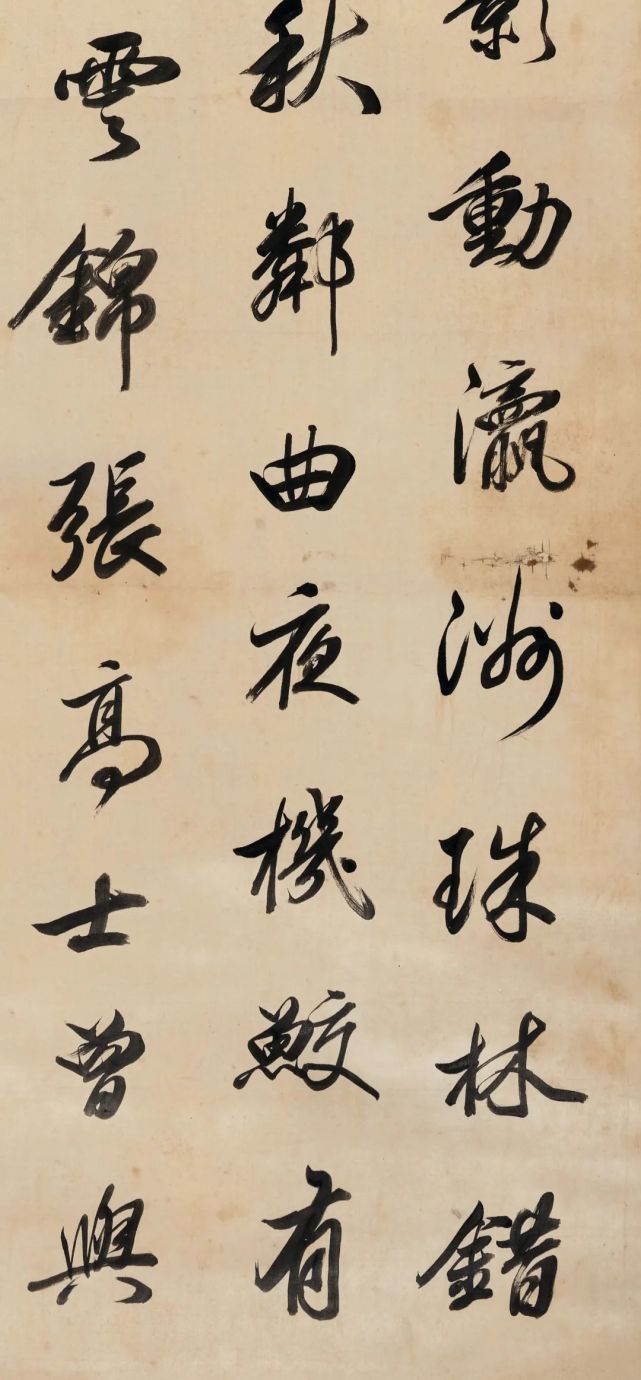 影動瀛洲珠林錯
秋鄰曲夜機鮫有
雲錦張高士曾興